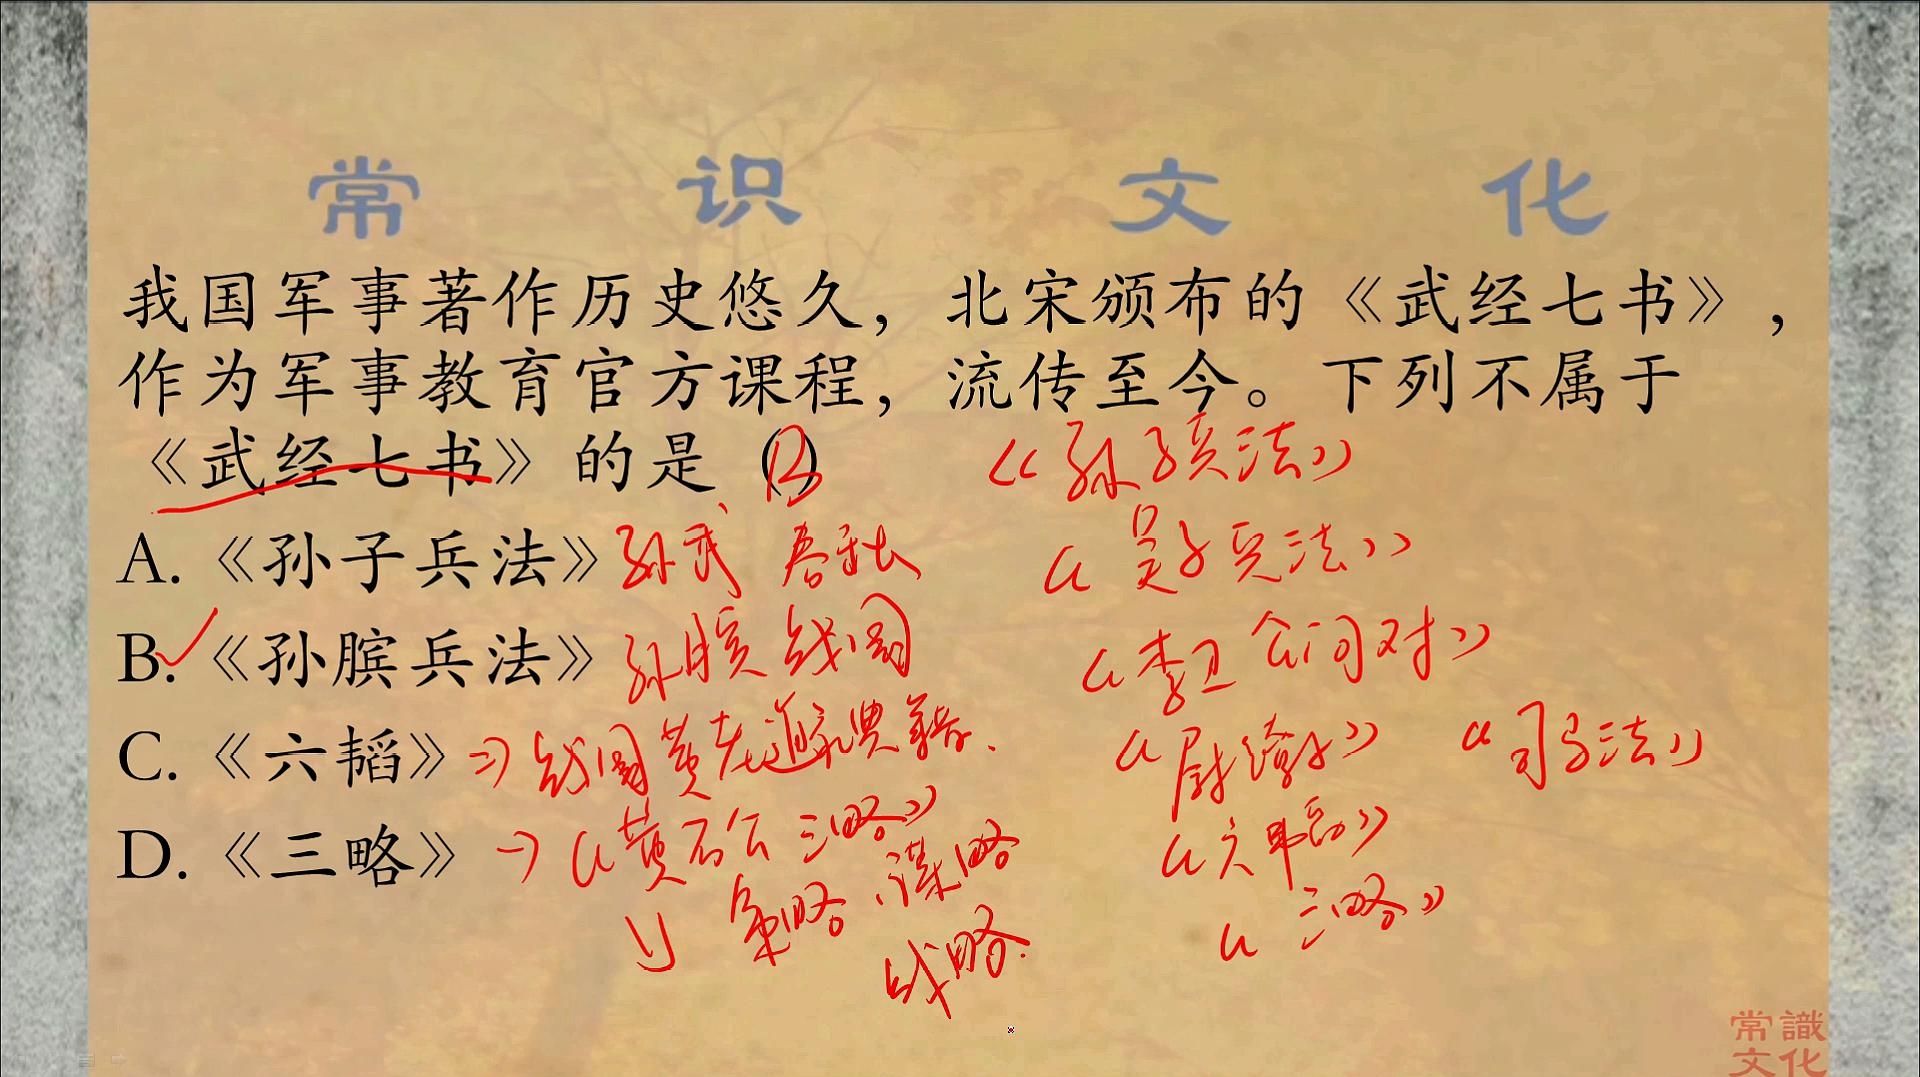 常识文化
我国军事著作历史悠久，北宋颁布的《武经七书》，
作为军事教育官方课程，流传至今。下列不属于
《武经七书》的是（B）
《孙子兵法》
A.《孙子兵法》孙武 春秋
《吴子兵法》
B.《孙膑兵法》孙膑 战国
《李卫公问对》
C.《六韬》⇒战国黄老道家典籍.
《尉缭子》 《司马法》
D.《三略》→《黄石公三略》
《六韬》
策略、谋略
《三略》
战略.
常識
文化